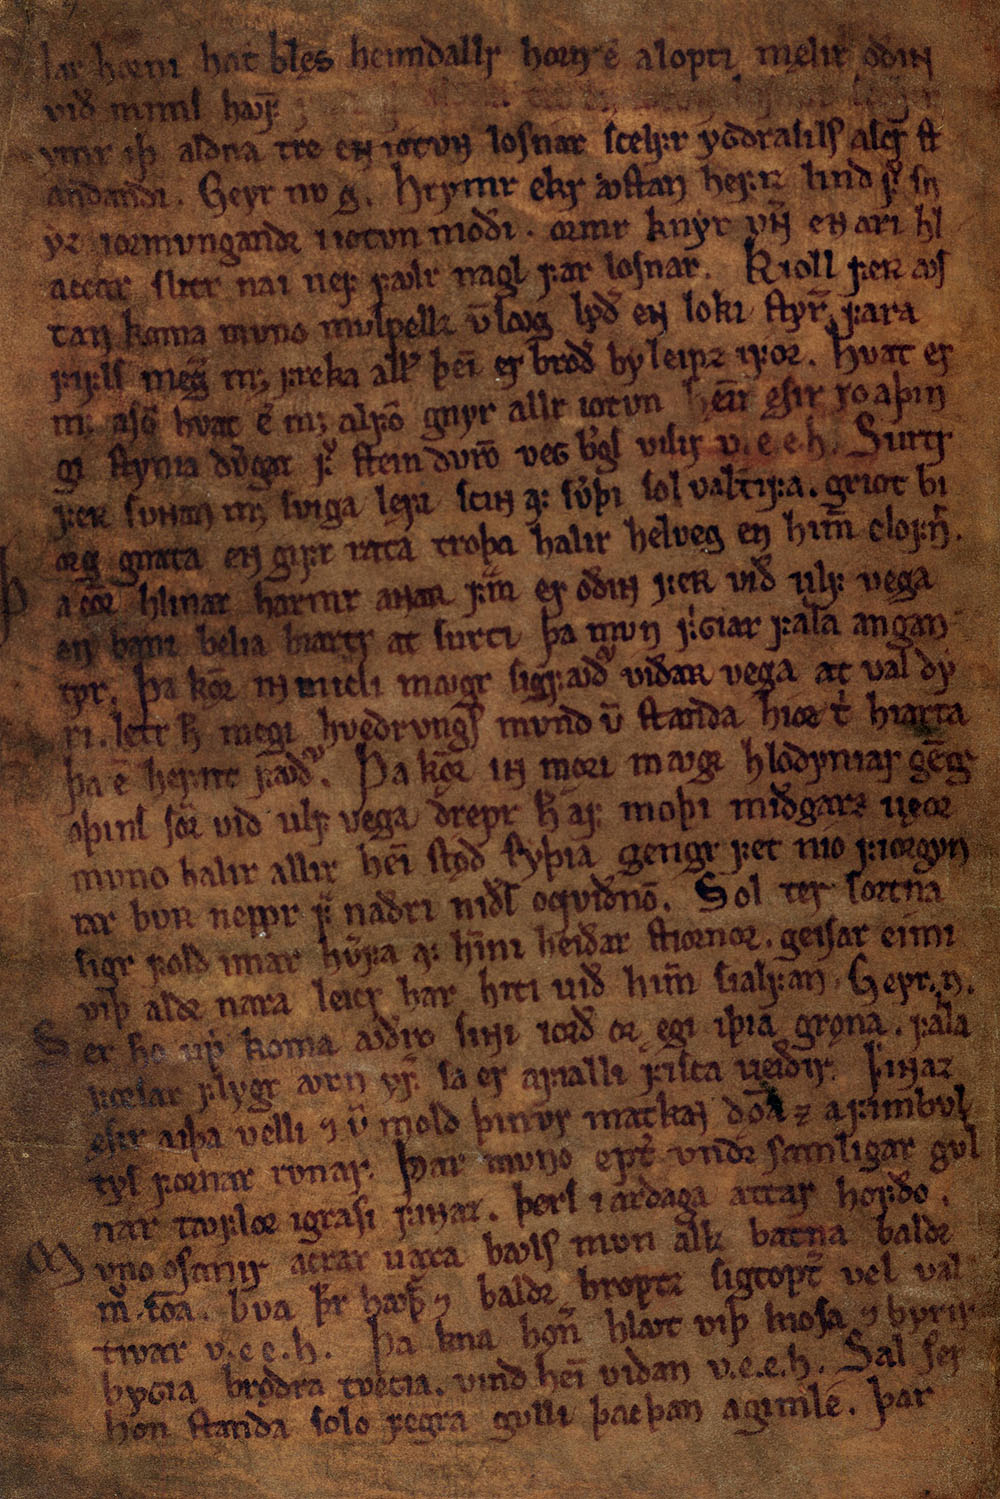 lar horni hat blęs heimdallr horn e͛ alopti męlir oðin
við mims hofꝼ
ymr iþ aldna tre en iotvn losnar scelfr ygdrasils ascr st
andandi. Geyr nv g. Hrymr ekr ꜹstan hefiz lind f͛ sn
yz iormvngandr i iotvn moði. ormr knyr vn̄ en ari hl
accar slitr nai nef fꜹlr nagl far losnar. Kioll ferr ꜹs
tan koma mvno mvspellz v̄ lꜹg lyð en loki styr͛ fara
fifls meg̅ mꝫ freka all͛ þei̅ er broð͛ byleipz ifor. Hvat er
mꝫ aso̅ hvat e͛ mꝫ alfo̅ gnyr allr iotvn he̅r ęsir ro aþin
gi stynia dv͛gar f͛ stein dvro̅ veG b͛gs visir v.e.e.h. Surtr
ferr svnan mꝫ sviga lęfi scin a͛f sv͛þi sol valtifa. griot bi
org gnata en gifr rata troþa halir helveg en himi̅ clofn͛.
Þ a co̅r hlinar harmr anar fra̅m er oðin ferr við ulf vega
en bani belia biartr at surti þa mvn friGiar falla angan
tyr. Þa kø̅r in micli mꜹgr sigfꜹd͛ viðarr vega at val dy
ri. letr h̅ megi hveðrvngs mvnd v̅ standa hior t͛ hiarta
þa e͛ hefnt fꜹd͛. Þa kø̅r in møri mꜹgr hlodyniar ge̅gr
oþins so̅r við ulf vega drepr h̅ af moþi miðgarz ueor
mvno halir allir hei̅ stǫð ryþia gengr fet nio fiorgyn
iar bvrr neppr f͛ naðri niðs oqviðno̅. Sol ter sortna
sigr fold imar hv͛fa af hi̅ni heiðar stiornor. geisar eimi
viþ aldr nara leicr har hiti við himi̅ sialfan Geyr.n.
S er ho̅ up koma ꜹðro sini iorð ór ęgi iþia gręna. falla
forsar flygr ꜹrn yf͛ sa er afialli fisca ueiðir. Finaz
ęsir aiþa velli ⁊ v̅ mold þinvr matkan do̅a ⁊ a fimbvl
tys fornar rvnar. Þar mvno ept͛ vndr samligar gvl
nar tꜹflor igrasi finaz. þers i ardaga attar hofðo.
M vno osanir acrar uaxa bꜹls mvn allz batna baldr
mv̅ co̅a. bva þr͛ hꜹþr ⁊ baldr hroptz sigtopt͛ vel val
tivar v.e.e.h. Þa kna høn͛ hlꜹt viþ kiosa ⁊ byrir
bygia brǫðra tveGia. vind hei̅ viðan v.e.e.h. Sal ser
hon standa solo fegra gvlli þacþan agimle͛. þar